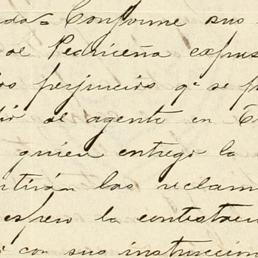 Conforme sus
de Pedriceña expus
perjuicios qe se p
al agente en
quien entregó la
las reclam
espero la contestaci
con sus instruccion